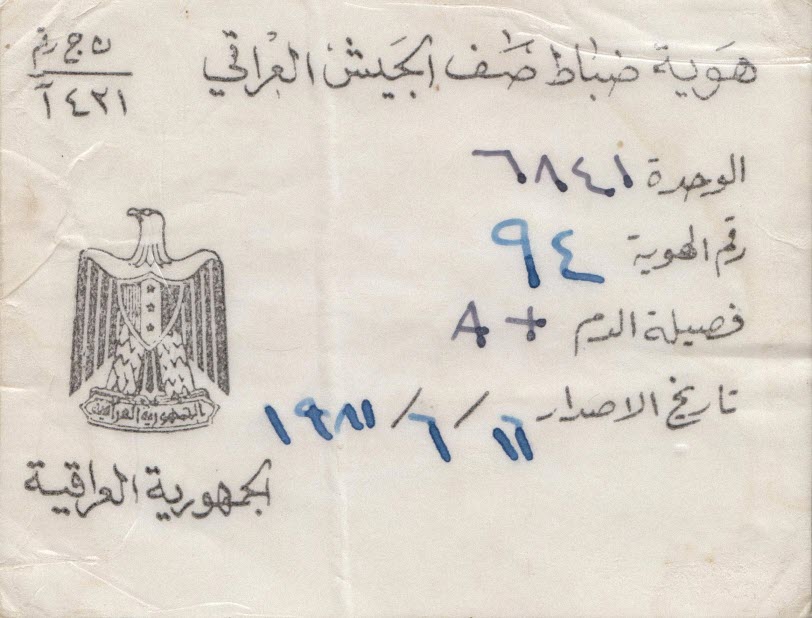 هوية ضباط صف الجيش العراقي
ن ج رقم
١٤٢١ آ
الوحدة ٦٨٤١
رقم الهوية ٩٤
فصيلة الدم A+
تاريخ الاصدار
الجمهورية العراقية
الجمهورية العراقية